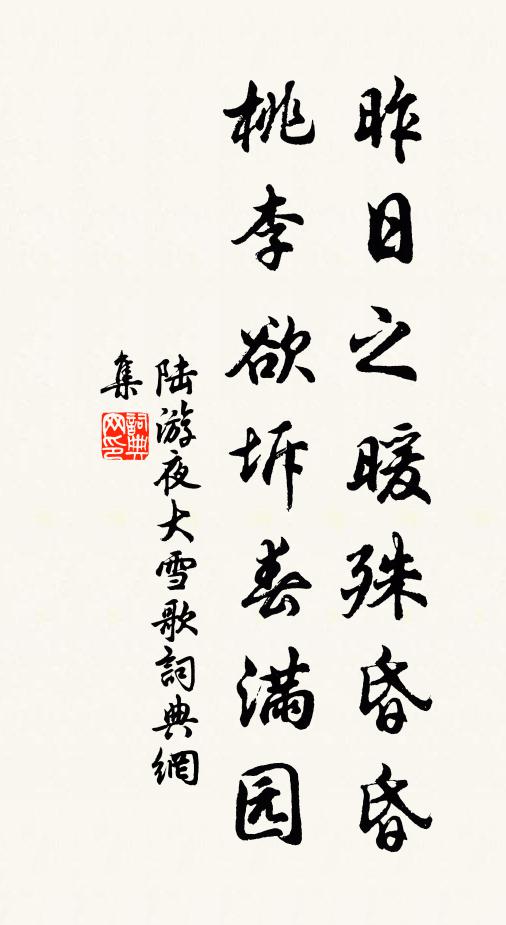 昨日之暖殊昏昏
桃李欲坼春满园
陆游夜大雪歌詞典網
集
詞典
网印